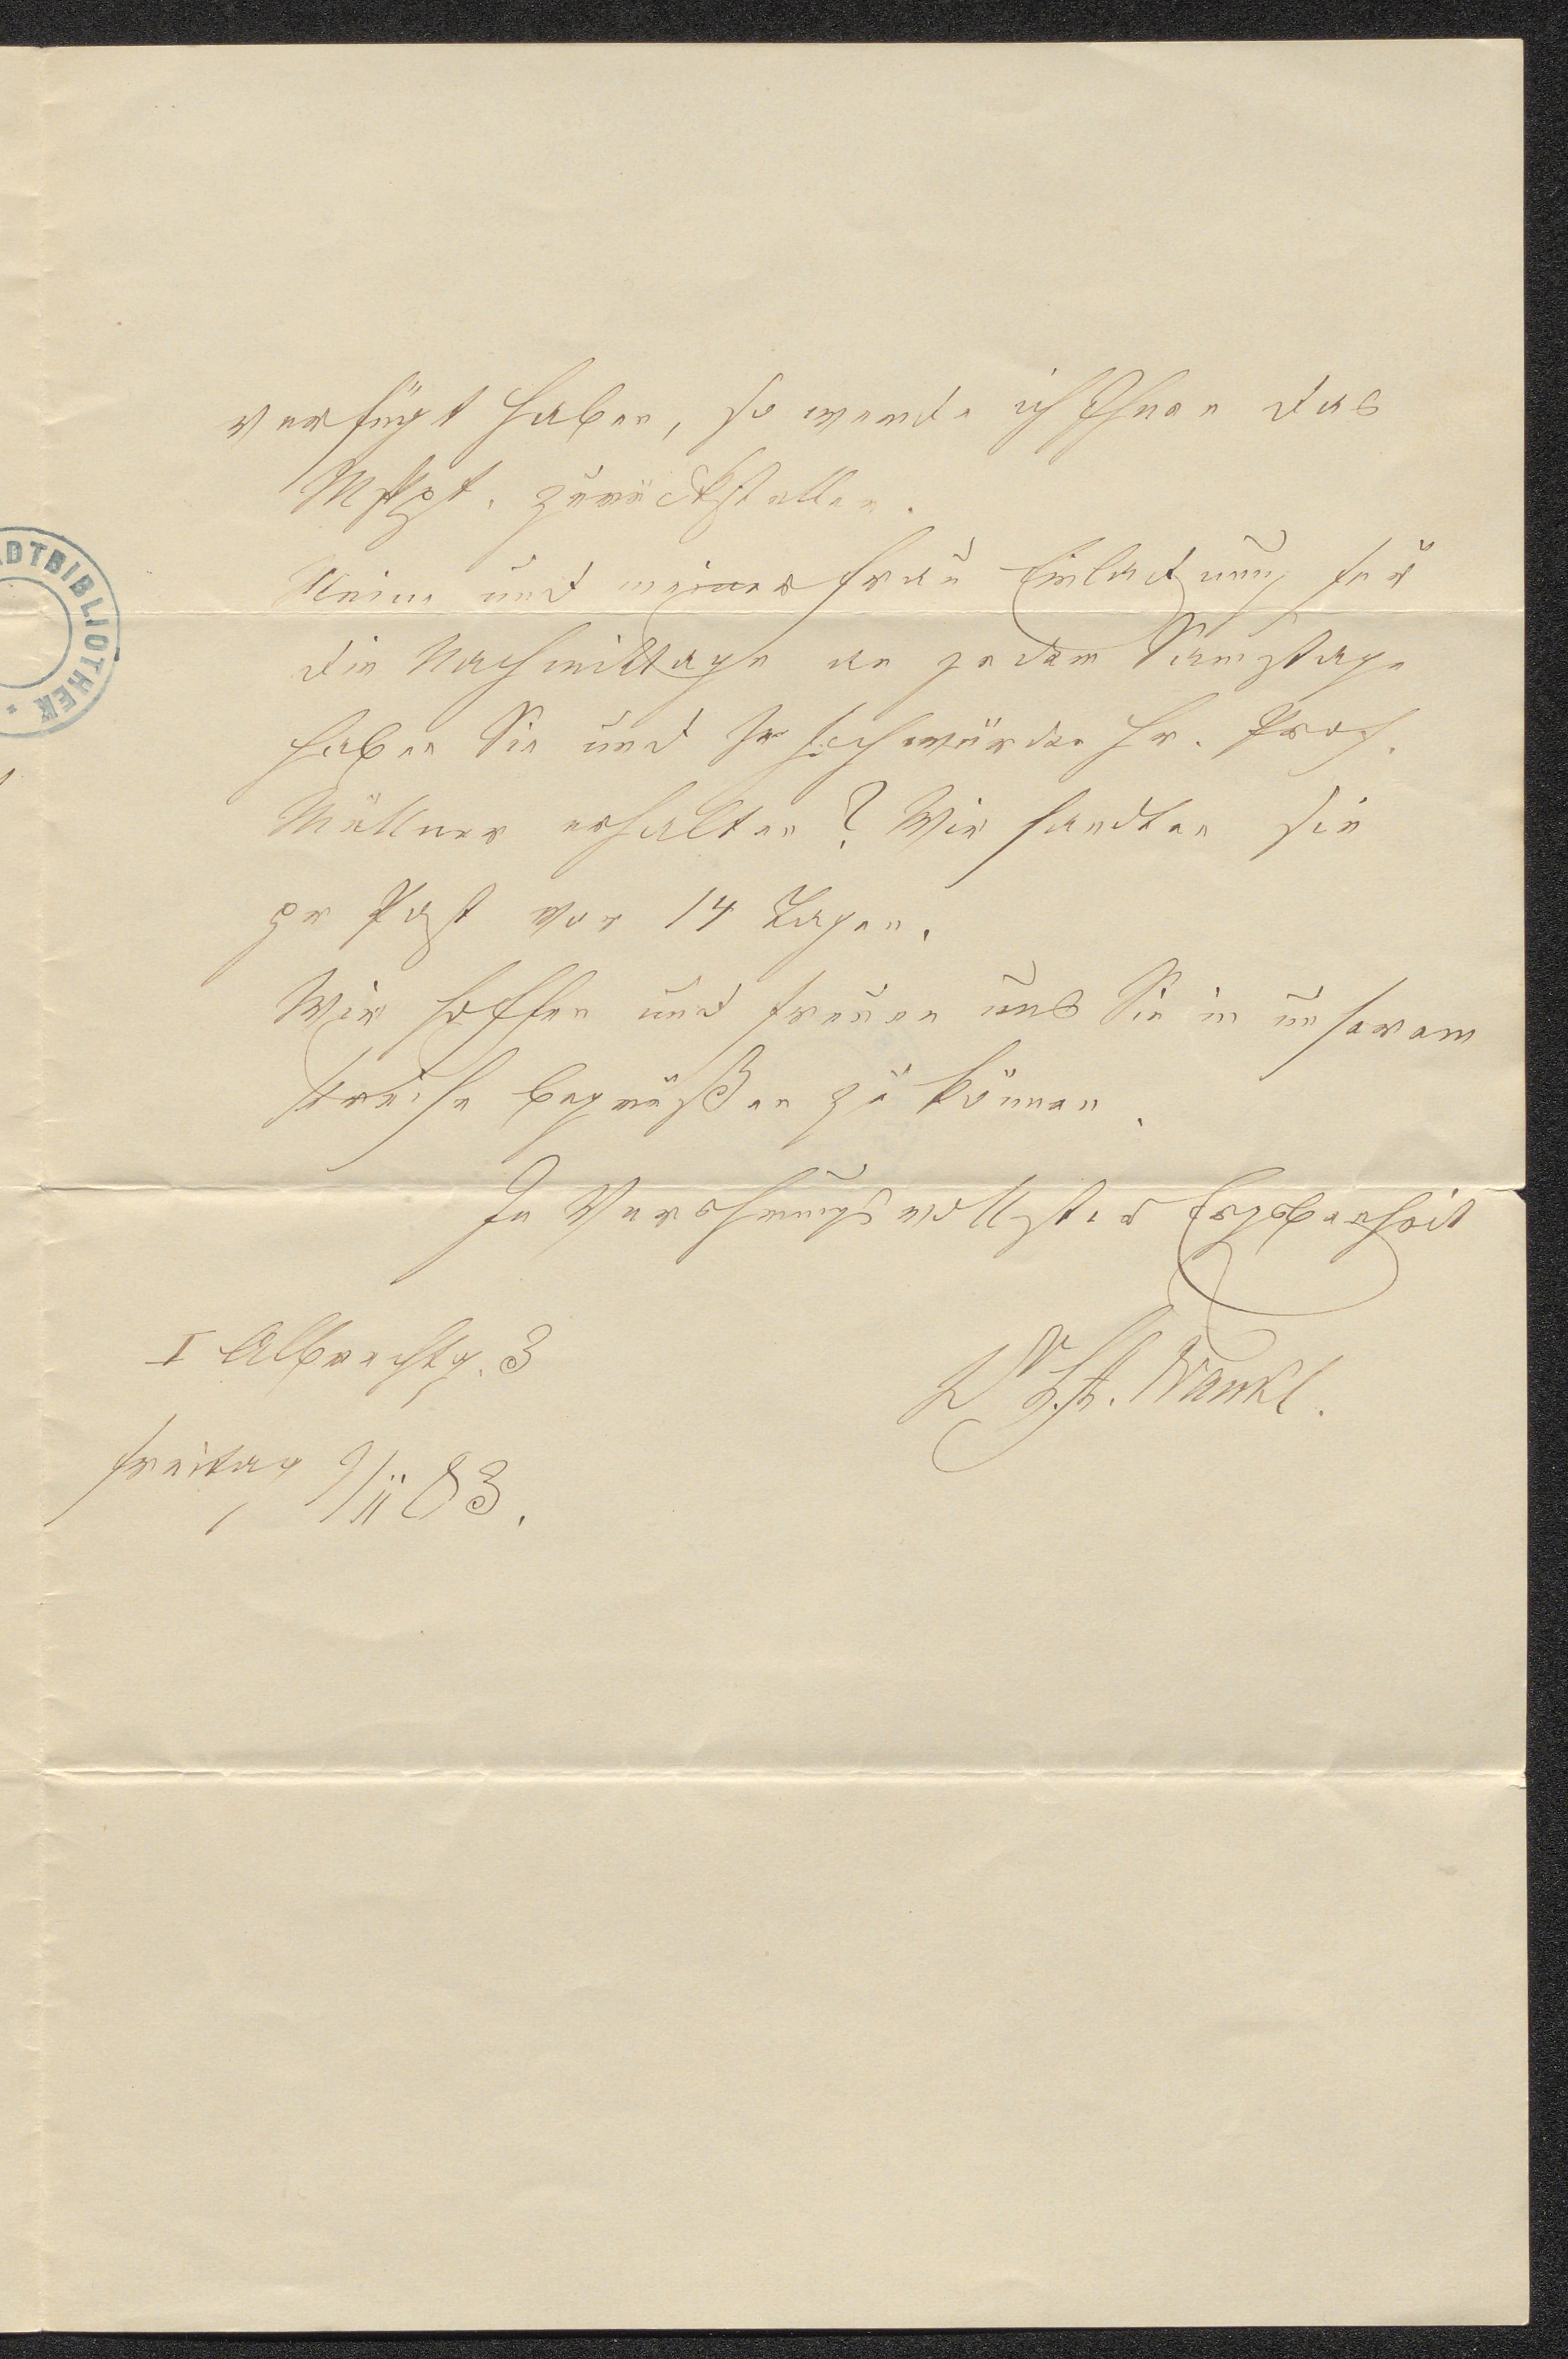 verfügt haben, so werde ich Ihnen das
Mskpt. zurückstellen.
Meine und meiner Frau Einladung für
die Nachmittage an jedem Samstage
haben Sie und Sr Hochwürden Hr. Prof.
Müllner erhalten? Wir sandten sie
pr Post vor 14 Tagen.
Wir hoffen und freuen uns Sie in unserem
Kreise begrüßen zu können.
In Verehrungsvollster Ergebenheit
Dr L. A. Frankl.
I Albrechtg. 3
Freitag 9/II 83.
DTBIBLIOTHEK